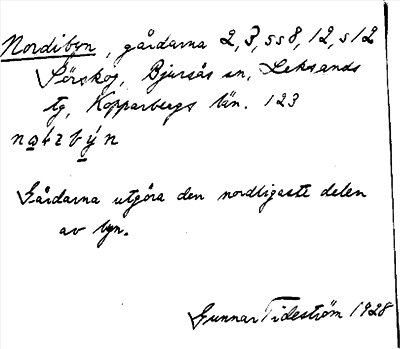 Nordibyn, gårdarna 2, 3, ss 8, 12, s12
Sörskog, Bjursås sn, Leksands
tg, Kopparbergs län. 123
Gårdarna utgöra den nordligaste delen
av byn.
Gunnar Tideström 1928